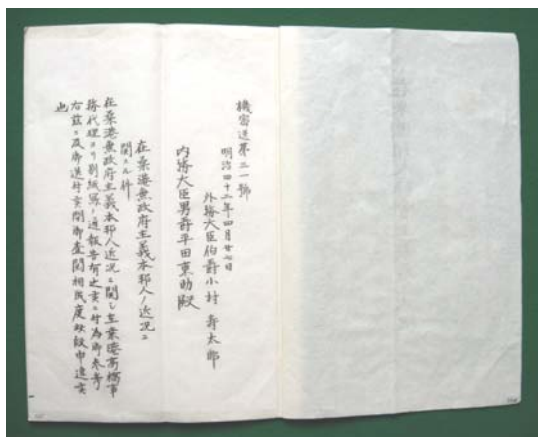 機密送第二一號
明治四十二年四月廿七日
外務大臣伯爵小村壽太郎
内務大臣男爵平田東助殿
在桑港無政府主義本邦人ノ近況ニ
関スル件
在桑港無政府主義本邦人近況ニ関シ在桑港高橋事
務代理ヨリ別紙寫ノ通報告有之候ニ付為御参考
右茲ニ及御送付候間御査閲相成度此段申進候
也